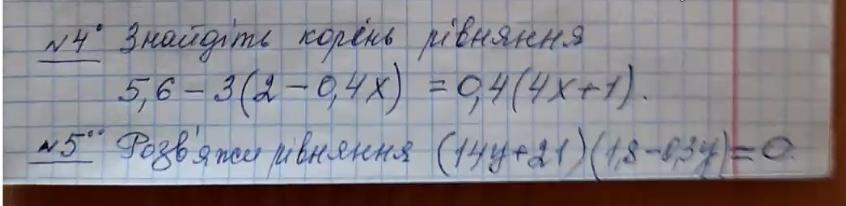 №4° Знайдіть корень рівняння
5,6 - 3(2 - 0,4x) = 0,4(4x+1).
№5°° Розв'яжи рівняння (14y+21)(1,8-0,3y)=0.